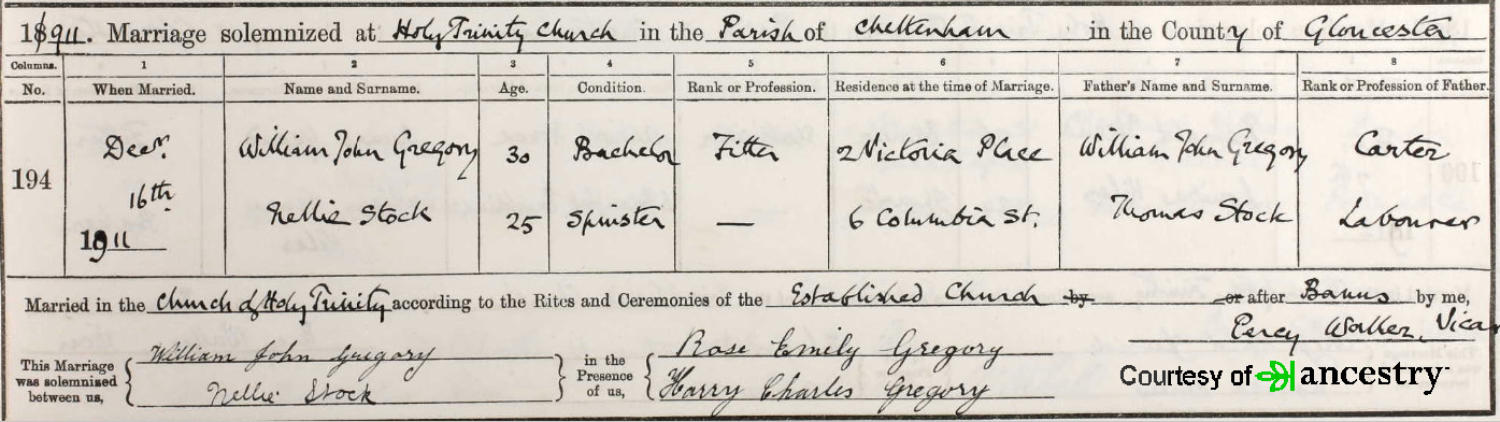 1911. Marriage solemnized at Holy Trinity Church in the Parish of Cheltenham in the County of Gloucester
Columns. 1 2 3 4 5 6 7 8
No. When Married. Name and Surname. Age. Condition. Rank or Profession. Residence at the time of Marriage. Father's Name and Surname. Rank or Profession of Father.
194
Decr. William John Gregory 30 Bachelor Fitter 2 Victoria Place William John Gregory Carter
16th
Nellie Stock 25 Spinster — 6 Columbia St. Thomas Stock Labourer
1911
Married in the Church of Holy Trinity according to the Rites and Ceremonies of the Established Church by or after Banns by me,
Percy Walker, Vicar
This Marriage was solemnized between us,
William John Gregory
Nellie Stock
in the Presence of us,
Rose Emily Gregory
Harry Charles Gregory
Courtesy of ancestry